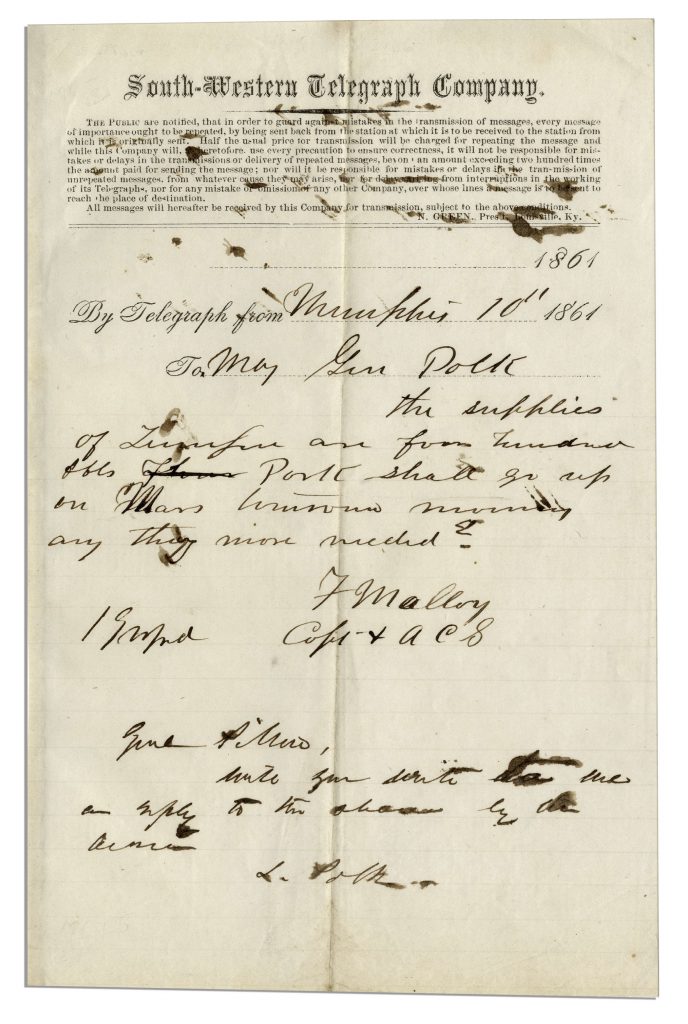 South-Western Telegraph Company.
THE PUBLIC are notified, that in order to guard against mistakes in the transmission of messages, every message
of importance ought to be repeated, by being sent back from the station at which it is to be received to the station from
which it is originally sent. Half the usual price for transmission will be charged for repeating the message and
while this Company will, heretofore, use every precaution to ensure correctness, it will not be responsible for mis-
takes or delays in the transmissions or delivery of repeated messages, beyon an amount exceeding two hundred times
the amount paid for sending the message; nor will it be responsible for mistakes or delays in the transmission of
unrepeated messages, from whatever cause they may arise, nor for delays arising from interruptions in the working
of its Telegraphs, nor for any mistake or omission of any other Company, over whose lines a message is to be sent to
reach the place of destination.
All messages will hereafter be received by this Company for transmission, subject to the above conditions.
N. GREEN, Pres't, Louisville, Ky.
1861
By Telegraph from Memphis 10" 1861
To. Maj Gen Polk
the supplies
of are four hundred
bbls Pork shall go up
on Mars morning
any thing more needed?
F Malloy
Capt + A C S
Genl Pillow,
you write me
a reply to the by the
L. Polk